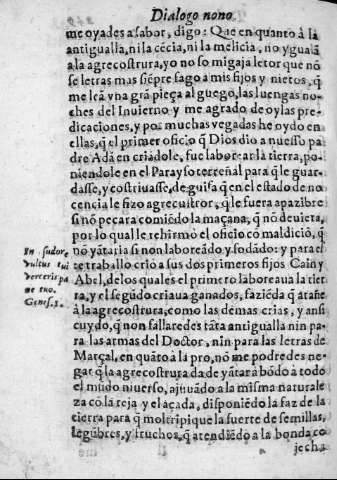 Dialogo nono
me oyades a sabor, digo: Que en quanto à la
antigualla, ni la cécia, ni la melicia, no ygualã
a la agrecostrura, yo no so migaja letor que nõ
se letras mas siẽpre sago a mis fijos y nietos, q̃
me leã vna grã pieça al guego, las luengas no
ches del Inuierno y me agrado de oy las pre-
dicaciones, y por muchas vegadas he oydo en
ellas, q̃ el primer oficio q̃ Dios dio a nuesso pa
dre Adã en criãdole, fue laborar la tierra, po-
niendole en el Parayso terreñal para q̃ le guar-
dasse, y costriuasse, de guisa q̃ en el estado de no
cencia le fizo agrecustror, q̃ le fuera apazibre
si nõ peçara comiẽdo la maçana, q̃ nõ deuiera,
por lo qual le rehirmò el oficio cõ maldiciõ, q̃
no yãtaria si non laboreãdo y sodãdo: y para el
te traballo crio a sus dos primeros fijos Cain y
Abel, de los queles el primero laboreaua la tier
ra, y el segũdo criaua ganados, faziẽda q̃ atañe
à la agrecostrura, como las demas crias, y ansi
cuydo, q̃ non fallaredes tãta antigualla nin pa-
ra las armas del Doctor, nin para las letras de
Marçal, en quãto à la pro, nõ me podredes ne-
gar q̃ la agrecostrura da de yãtar à bõdo à todo
el mũdo niuerso, ajuuãdo a la misma naturale
za cõ la reja y el açada, disponiẽdo la faz de la
tierra para q̃ moltripique la fuerte de semillas,
legũbres, y fruchos, q̃ atendiẽdo a la bonda co
jecha
In sudore
vultus tui
vesceris pa
ne tuo.
Genes. 3.